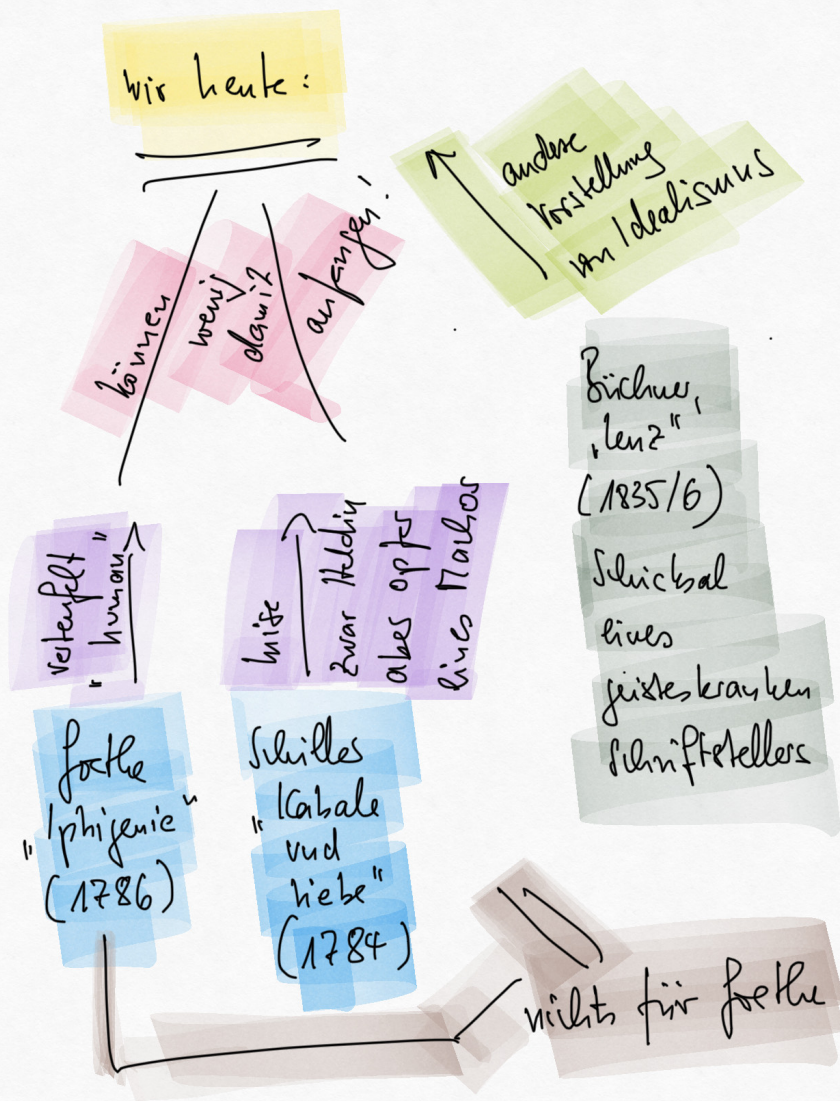 Wir heute:
können
wenig
damit
anfangen!
andere
Vorstellung
von Idealismus
Büchner,
„Lenz"
(1835/6)
Schicksal
eines
geisteskranken
Schriftstellers
verteufelt
"human"
Luise
zwar Heldin
aber Opfer
eines Machos
Goethe
"Iphigenie"
(1786)
Schillers
"Kabale
und
Liebe"
(1784)
nichts für Goethe